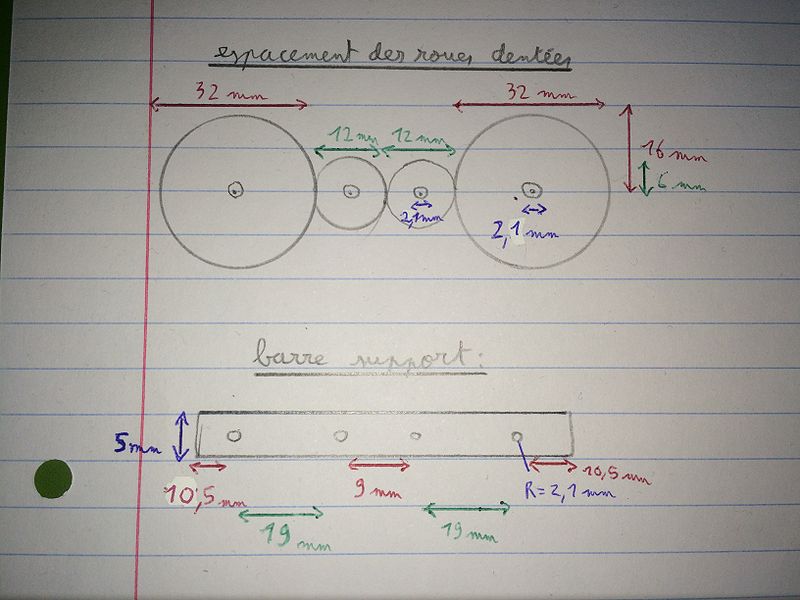 espacement des roues dentées
32 mm
32 mm
12 mm
12 mm
16 mm
6 mm
2,1mm
2,1 mm
barre support :
5mm
10,5mm
9 mm
10,5 mm
R=2,1 mm
19 mm
19 mm